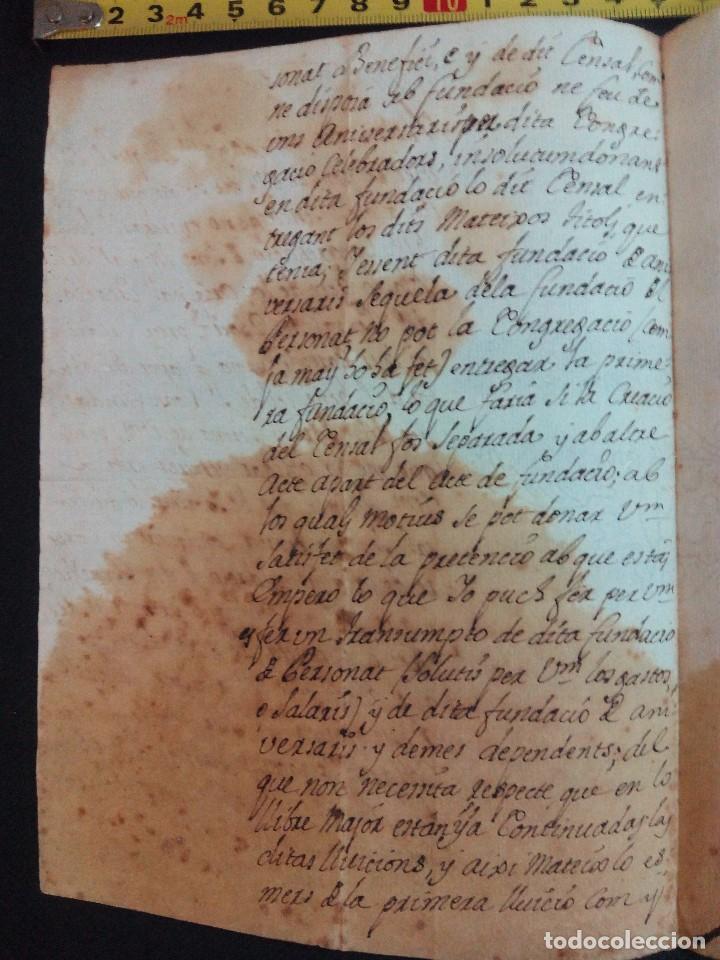 2 3 4 5 6 7 8 9 10 1 2 3 4 5 6 7 8 9
2m
sonat o Benefici, e y de dit Censal
ne disposá ab fundació ne feu de
uns Aniversaris per dita Congre
gació Celebradors, insolutumdonant
en dita fundació lo dit Censal en
tregant los dits Mateixos titols que
tenia; Y essent dita fundació de ani
versaris sequela dela fundació del
Personat no pot la Congregació (com
ja may ho ha fet) entregar la prime
ra fundació, lo que faria si la Creació
del Censal fos separada y ab altre
Acte apart del Acte de fundació; ab
los quals Motius se pot donar Vm
satisfet de la pretenció ab que està;
Empero lo que Jo puch fer per Vm
es fer un transumpto de dita fundació
de Personat (solutis per Vm los gastos,
e salaris) y de dita fundació de ani
versaris y demes dependents; del
que non necessita respecte que en lo
llibre Major estan ya Continuadas las
ditas lluicions, y aixi Mateix lo es
mers de la primera lluició com y
todocoleccion